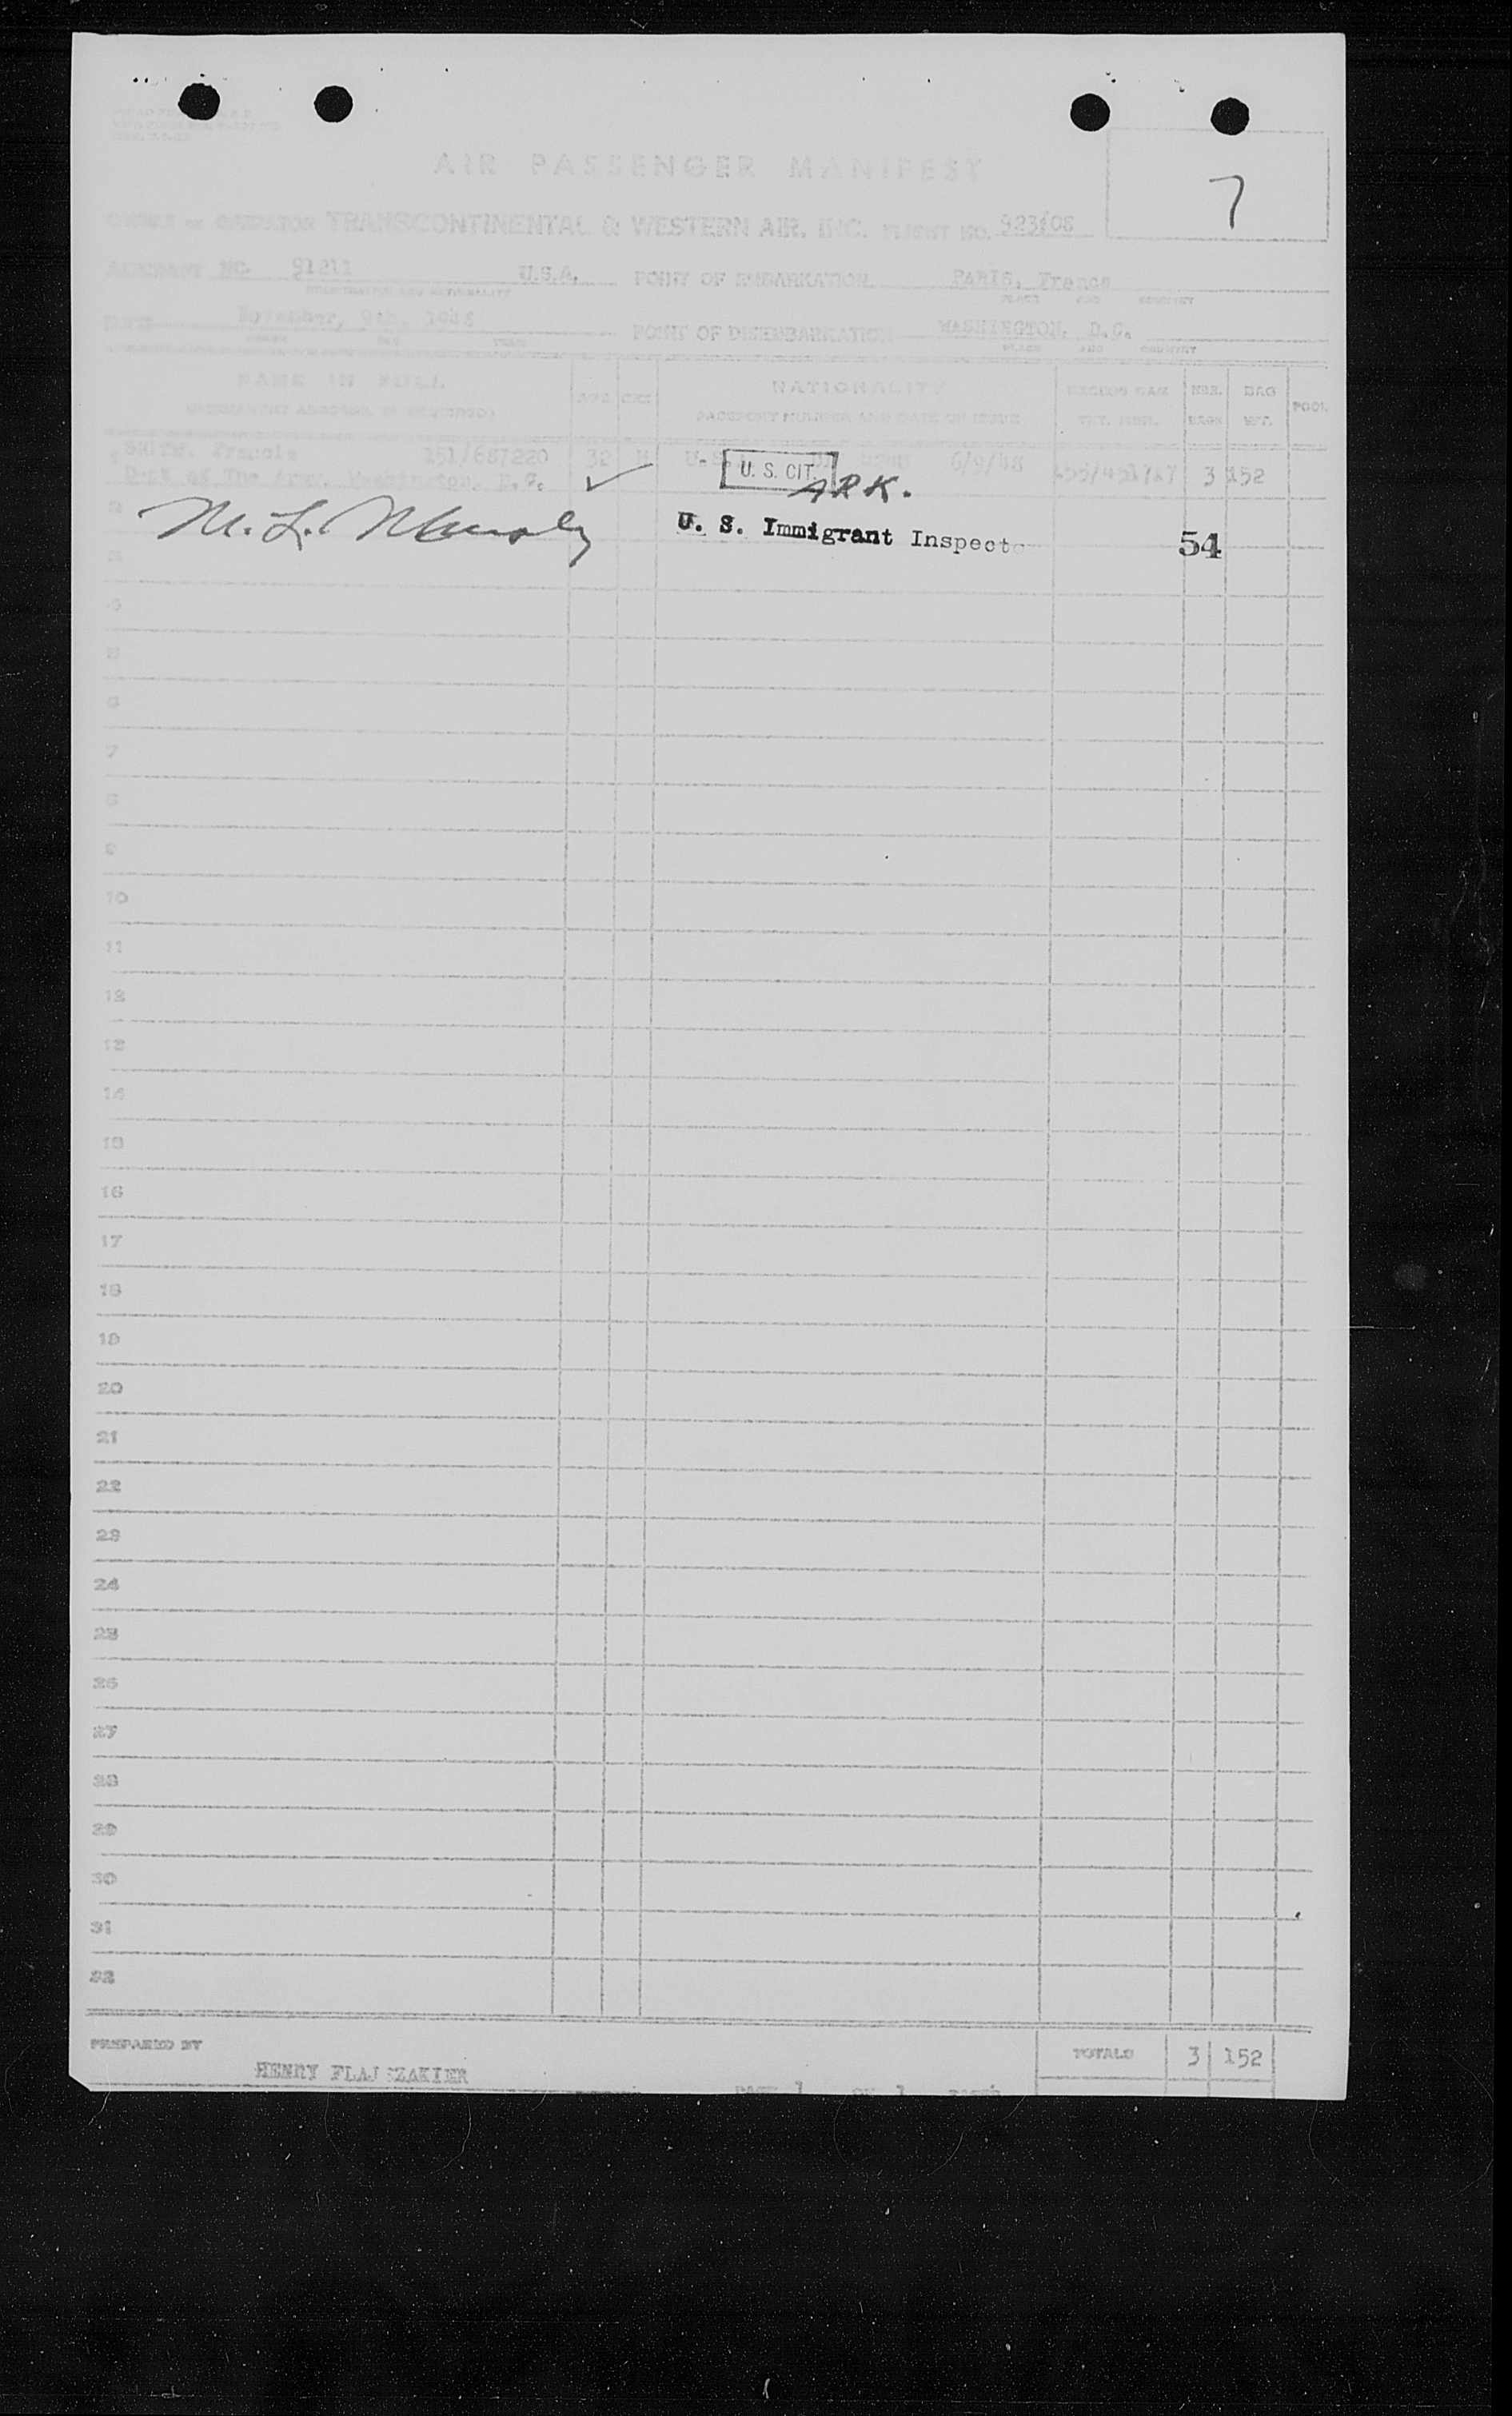 AIR PASSENGER MANIFEST
7
OWNER OR OPERATOR TRANSCONTINENTAL & WESTERN AIR, INC. FLIGHT NO. 923/08
AIRCRAFT NO. 91211 U.S.A. POINT OF EMBARKATION PARIS, France
REGISTRATION AND NATIONALITY PLACE AND COUNTRY
DATE November, 9th, 1948 POINT OF DISEMBARKATION WASHINGTON, D.C.
MONTH DAY YEAR PLACE AND COUNTRY
NAME IN FULL AGE SEX NATIONALITY NBR. BAGS BAG WT. POOL
PASSPORT NUMBER AND DATE OF ISSUE
SMITH, Francis 151/687220 32 M 6/9/48 3 152
Dept of The Army, Washington, D.C.
U. S. CIT.
ARK.
2 M. L.
U. S. Immigrant Inspecto
54
3
4
5
6
7
8
9
10
11
12
13
14
15
16
17
18
19
20
21
22
23
24
25
26
27
28
29
30
31
32
PREPARED BY TOTALS 3 152
HENRY
PAGE 1 OF 1 PAGES